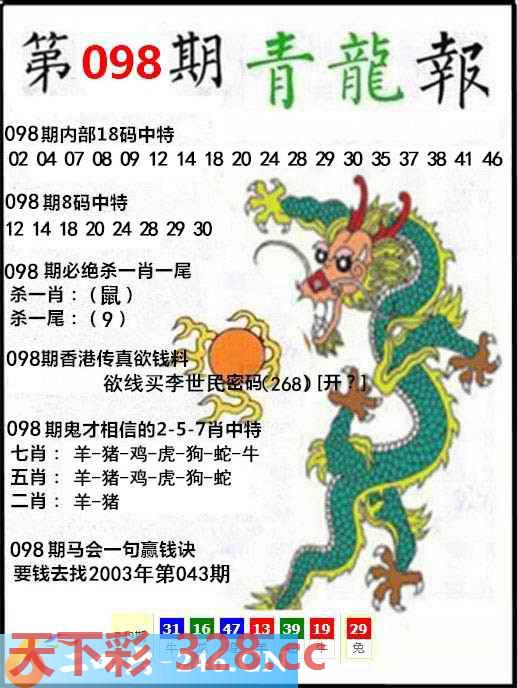 第098期 青龍報
098期内部18码中特
02 04 07 08 09 12 14 18 20 24 28 29 30 35 37 38 41 46
098期8码中特
12 14 18 20 24 28 29 30
098期必绝杀一肖一尾
杀一肖：（鼠）
杀一尾：（9）
098期香港传真欲钱料
欲线买李世民密码(268)[开？]
098期鬼才相信的2-5-7肖中特
七肖： 羊-猪-鸡-虎-狗-蛇-牛
五肖： 羊-猪-鸡-虎-狗-蛇
二肖： 羊-猪
098期马会一句赢钱诀
要钱去找2003年第043期
31 16 47 13 39 19 29
牛 兔
天下彩-328.cc